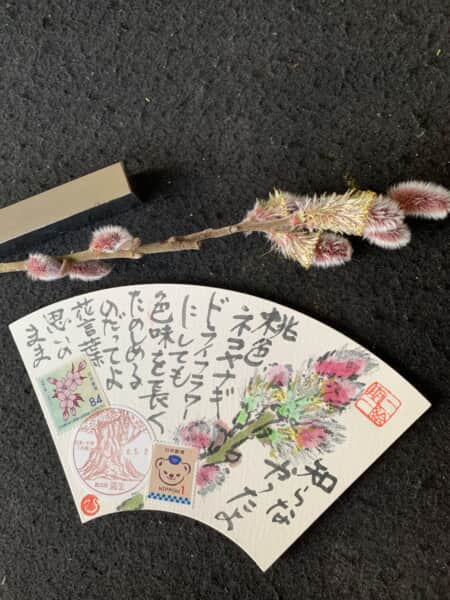 桃色
ネコヤナギ
ドライフラワー
にしても
色味を長く
たのしめる
のだってよ
花言葉
思いの
まま
知らな
かったよ
84
日本郵便
NIPPON 1
蒲生